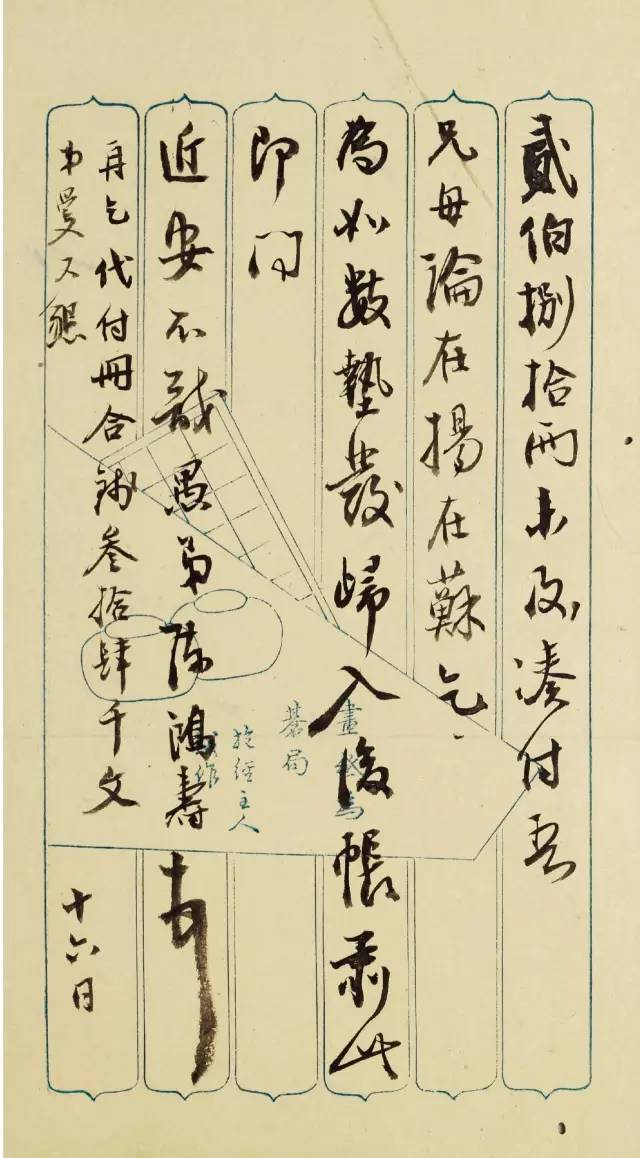 貳伯捌拾兩未及湊付吾
兄毋論在揚在蘇乞
為如數墊發歸入後帳耑此
即問
近安不誠愚弟陳鴻壽頓首
再乞代付冊合錢叁拾肆千文
弟曼又懇
十六日
畫紙為
棊局
拴經主人
戲作